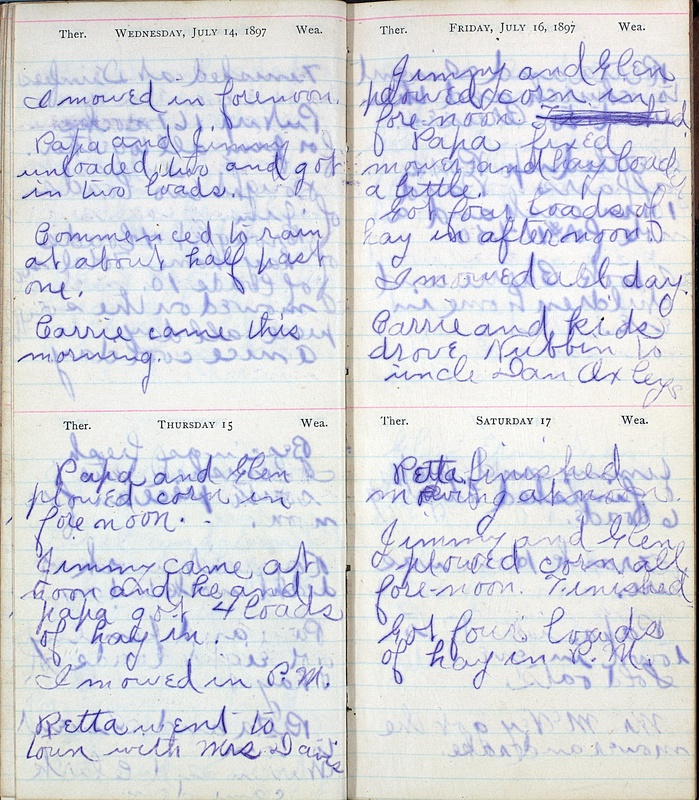 Ther. WEDNESDAY, JULY 14, 1897 Wea.
I mowed in forenoon.
Papa and Jimmy
unloaded two and got
in two loads.
Commenced to rain
at about half past
one.
Carrie came this
morning.
Ther. THURSDAY 15 Wea.
Papa and Glen
plowed corn in
fore noon.
Jimmy came at
noon and he and
papa got 4 loads
of hay in.
I mowed in P.M.
Retta went to
town with Mrs Davis
Ther. FRIDAY, JULY 16, 1897 Wea.
Jimmy and Glen
plowed corn in
fore-noon.
Papa fixed
mower and hay loader
a little.
Got four loads of
hay in after noon.
I mowed all day.
Carrie and kids
drove Nubbin to
uncle Dan Oxleys
Ther. SATURDAY 17 Wea.
Retta finished
mowing at noon.
Jimmy and Glen
plowed corn all
fore-noon. Finished
Got four loads
of hay in P.M.